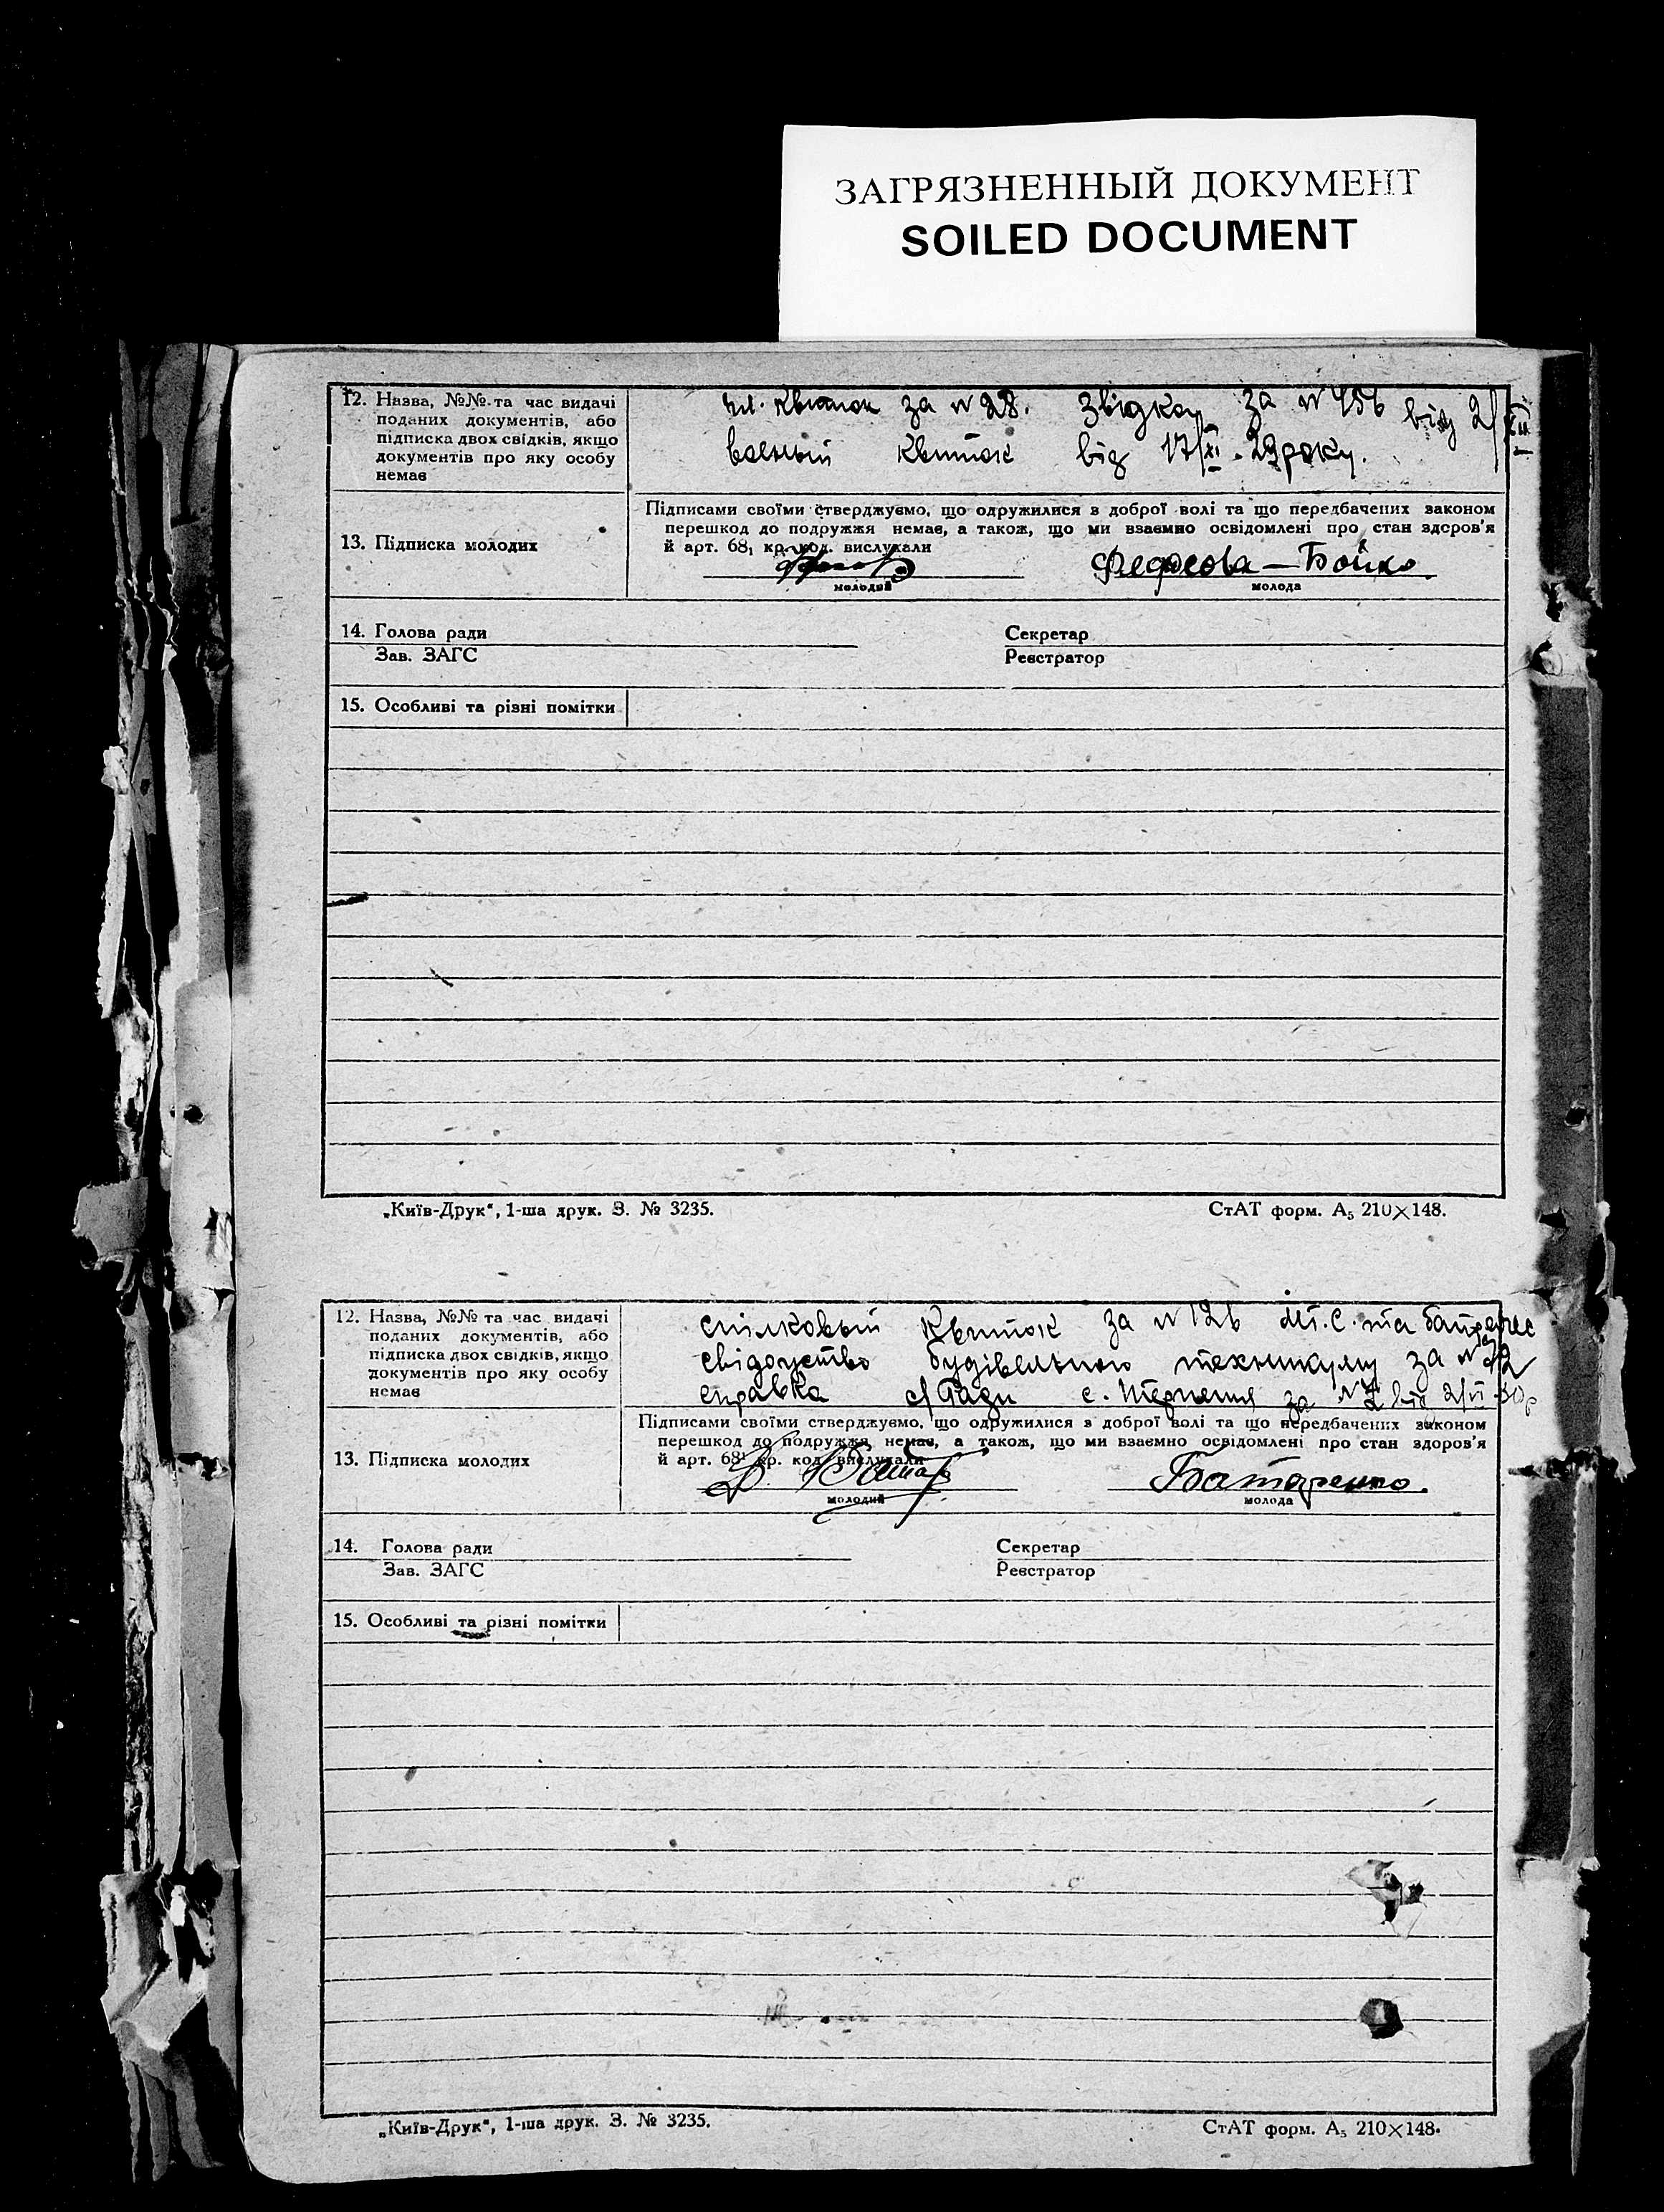 ЗАГРЯЗНЕННЫЙ ДОКУМЕНТ
SOILED DOCUMENT
12. Назва, №№ та час видачі
поданих документів, або
підписка двох свідків, якщо
документів про яку особу
немає
квиток за № 28. Звідка за № 456 від 2/XII
воєний квиток від 17/XI - 29 року.
Підписами своїми стверджуємо, що одружилися з доброї волі та що передбачених законом
перешкод до подружжя немає, а також, що ми взаємно освідомлені про стан здоров'я
й арт. 68, кр. код. вислухали
13. Підписка молодих
Федосова — Бойко
молодий
молода
14. Голова ради
Секретар
Зав. ЗАГС
Реєстратор
15. Особливі та різні помітки
„Київ-Друк“, 1-ша друк. З. № 3235.
СтАТ форм. А₅ 210×148.
12. Назва, №№ та час видачі
поданих документів, або
підписка двох свідків, якщо
документів про яку особу
немає
спілковый квиток за № 126
свідоцтво будівельного техникуму за №
справка с/Ради с. Терпения за № 2 від 2/VI - 30 р
Підписами своїми стверджуємо, що одружилися з доброї волі та що передбачених законом
перешкод до подружжя немає, а також, що ми взаємно освідомлені про стан здоров'я
й арт. 68¹ кр. код. вислухали
13. Підписка молодих
Батаренко.
молодий
молода
14. Голова ради
Секретар
Зав. ЗАГС
Реєстратор
15. Особливі та різні помітки
„Київ-Друк“, 1-ша друк. З. № 3235.
СтАТ форм. А₅ 210×148.